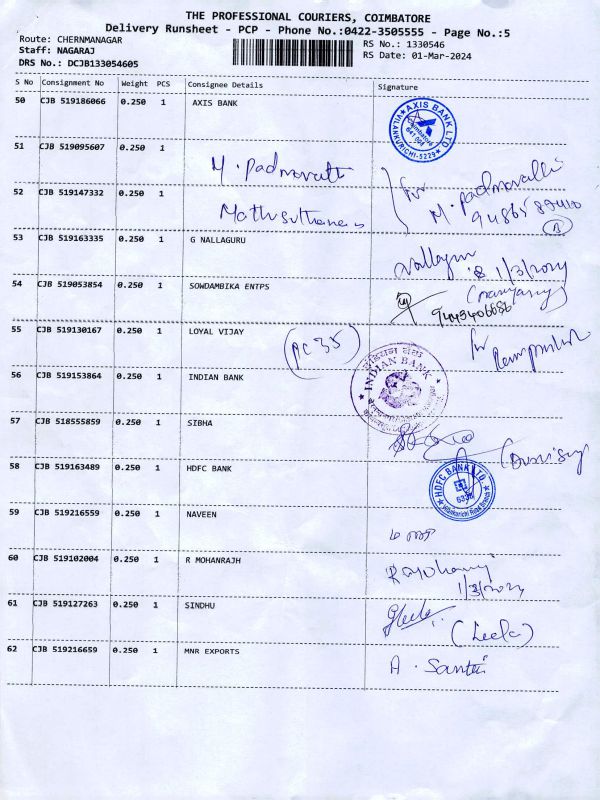 THE PROFESSIONAL COURIERS, COIMBATORE
Delivery Runsheet - PCP - Phone No.:0422-3505555 - Page No.:5
Route: CHERNMANAGAR
RS No.: 1330546
Staff: NAGARAJ
RS Date: 01-Mar-2024
DRS No.: DCJB133054605
S No Consignment No Weight PCS Consignee Details Signature
50 CJB 519186066 0.250 1 AXIS BANK
AXIS BANK LTD
VILANKURICHI-5229
Coimbatore
641 004
51 CJB 519095607 0.250 1 M. Padmavathi
for M. Padmavathi
52 CJB 519147332 0.250 1 Mathisuthanan
53 CJB 519163335 0.250 1 G NALLAGURU
Nallaguru
1/3/2024
54 CJB 519053854 0.250 1 SOWDAMBIKA ENTPS
9443406686
55 CJB 519130167 0.250 1 LOYAL VIJAY
(PC 35)
for
56 CJB 519153864 0.250 1 INDIAN BANK
INDIAN BANK
57 CJB 518555859 0.250 1 SIBHA
58 CJB 519163489 0.250 1 HDFC BANK
HDFC BANK LTD
Vilankurichi Road Branch
59 CJB 519216559 0.250 1 NAVEEN
60 CJB 519102004 0.250 1 R MOHANRAJH
1/3/2024
61 CJB 519127263 0.250 1 SINDHU
(Leela)
62 CJB 519216659 0.250 1 MNR EXPORTS
A. Santhi